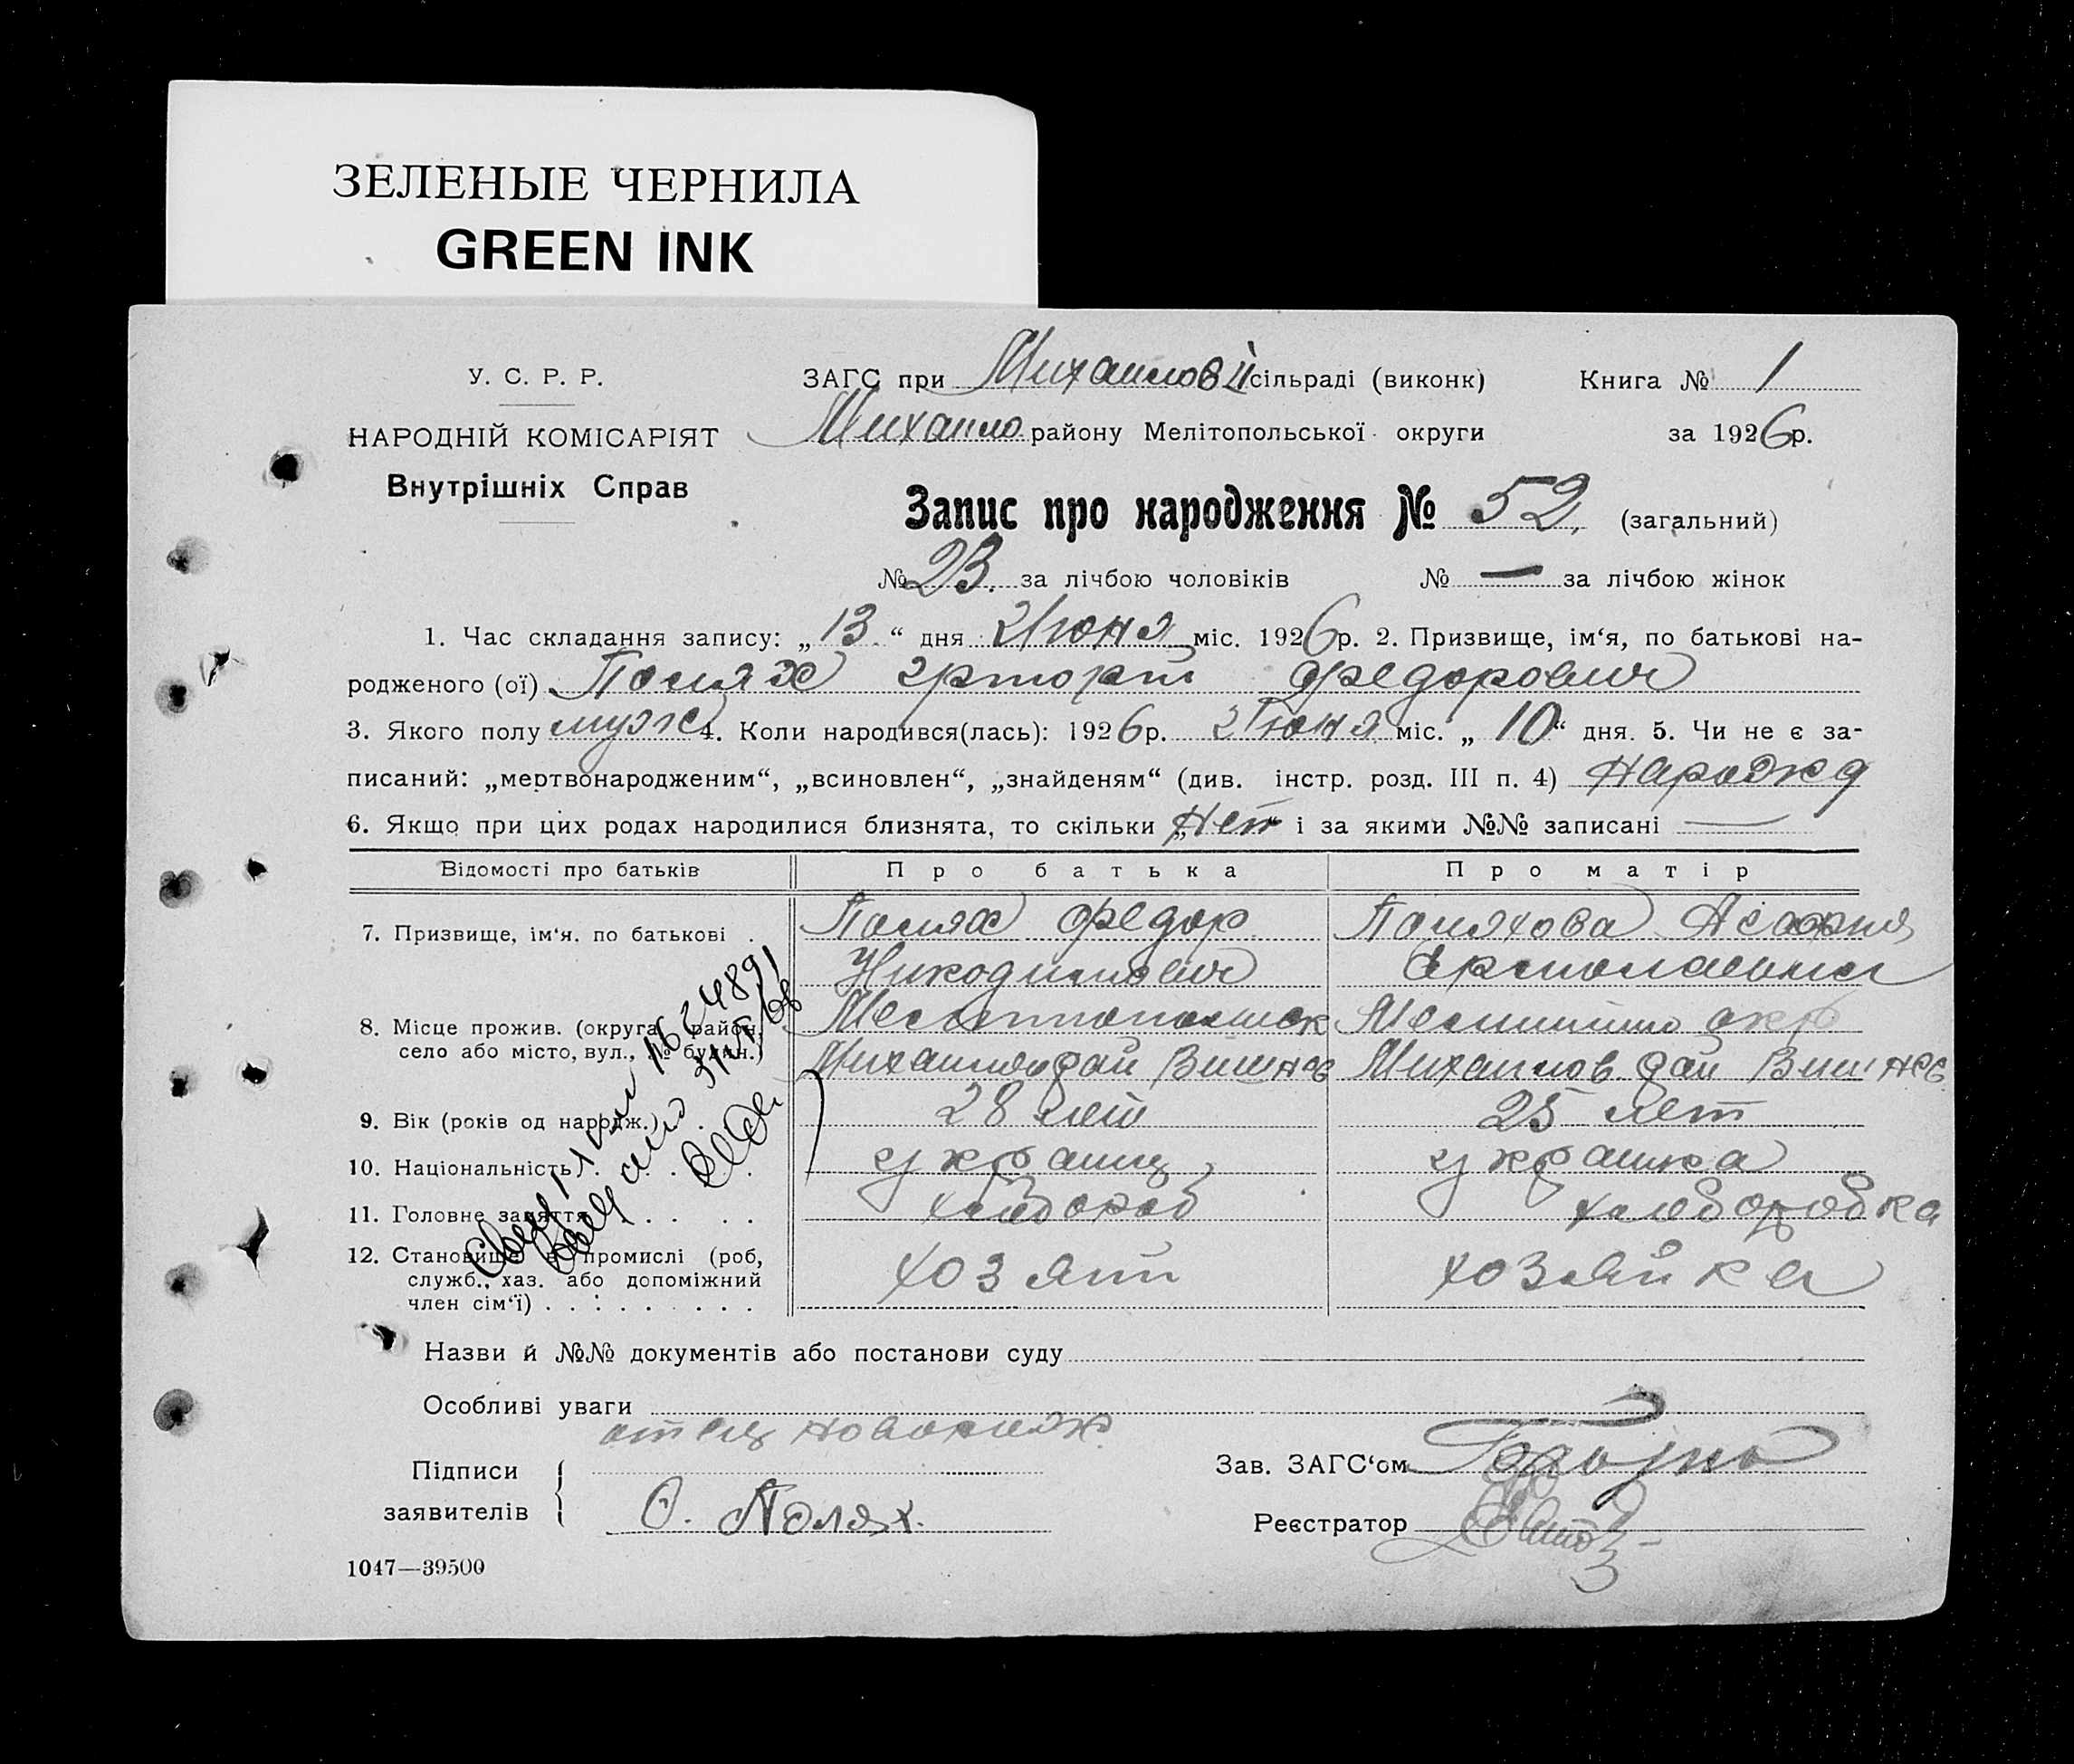 ЗЕЛЕНЫЕ ЧЕРНИЛА
GREEN INK
У. С. Р. Р.
НАРОДНІЙ КОМІСАРІЯТ
Внутрішніх Справ
ЗАГС при сільраді (виконк) Книга № 1
Михайло району Мелітопольської округи за 1926 р.
Запис про народження № 52 (загальний)
№ 23. за лічбою чоловіків № — за лічбою жінок
1. Час складання запису: „13“ дня Июня міс. 1926 р. 2. Призвище, ім‘я, по батькові на-
родженого (ої) Полях Федорович
3. Якого полу муж 4. Коли народився(лась): 1926 р. Июня міс. „10“ дня. 5. Чи не є за-
писаний: „мертвонародженим“, „всиновлен“, „знайденям“ (див. інстр. розд. III п. 4)
6. Якщо при цих родах народилися близнята, то скільки „Нет“ і за якими №№ записані —
Відомості про батьків Про батька Про матір
7. Призвище, ім‘я, по батькові . Полях Федор Поляхова
Никодимович
8. Місце прожив. (округа, район,
село або місто, вул., № будин.)
9. Вік (років од народж.) . 28 лет 25 лет
10. Національність . . . . . украинц украинка
11. Головне заняття . . . . хлебороб хлеборобка
12. Становище в промислі (роб,
служб., хаз. або допоміжний
член сім‘ї) . . . . . . . . хозяин хозяйка
Назви й №№ документів або постанови суду
Особливі уваги
отец
Підписи
заявителів
Ѳ. Полях.
Зав. ЗАГС‘ом
Реєстратор
1047—39500